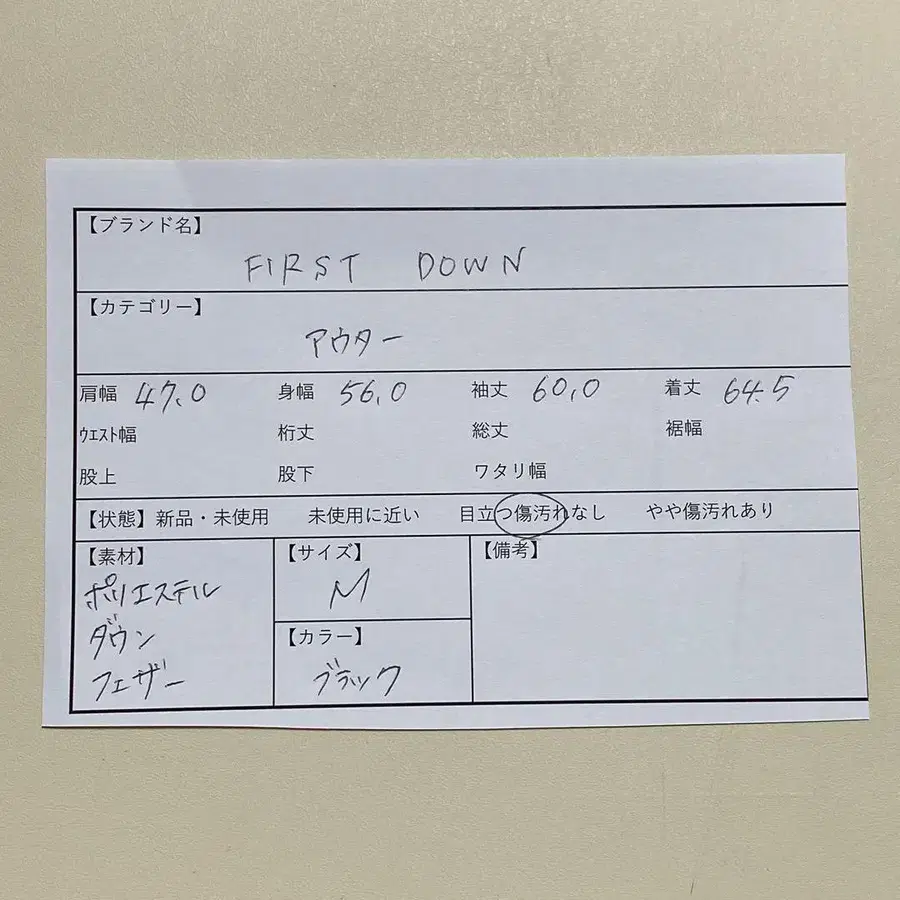 【ブランド名】
FIRST DOWN
【カテゴリー】
アウター
肩幅 47.0 身幅 56.0 袖丈 60.0 着丈 64.5
ウエスト幅 裄丈 総丈 裾幅
股上 股下 ワタリ幅
【状態】新品・未使用 未使用に近い 目立つ傷汚れなし やや傷汚れあり
【素材】
ポリエステル
ダウン
フェザー
【サイズ】
M
【カラー】
ブラック
【備考】